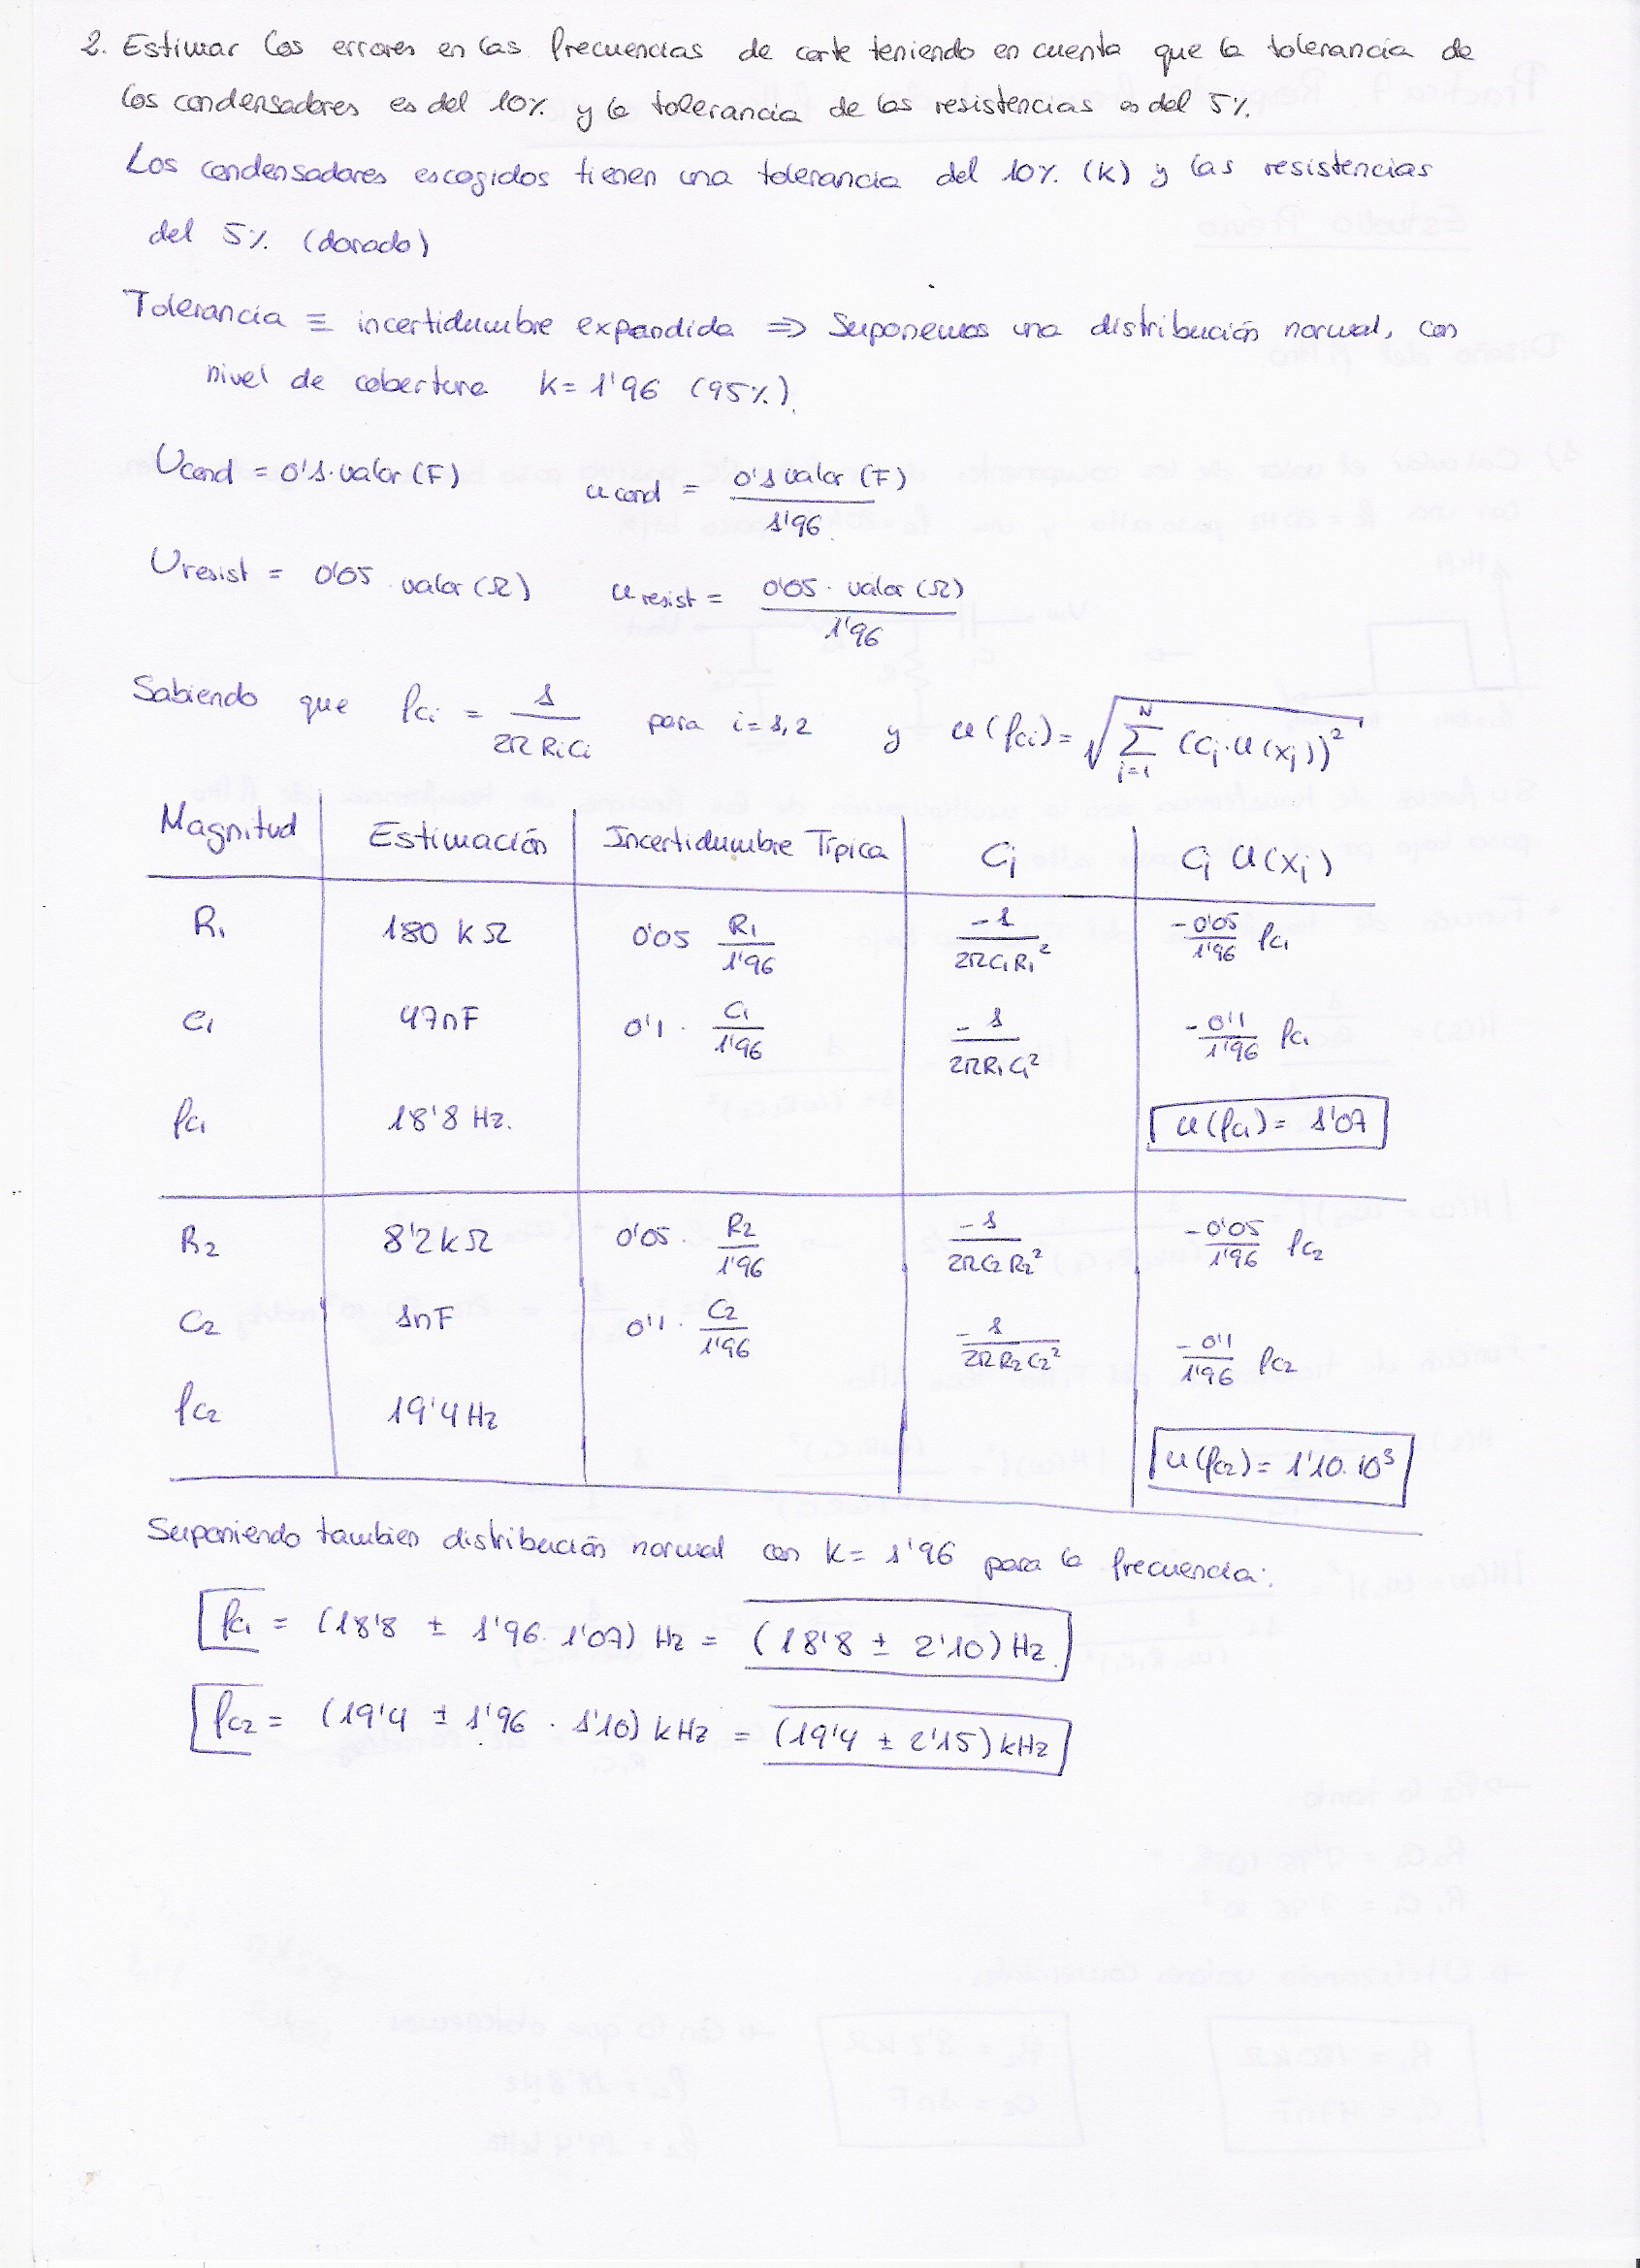 2. Estimar los errores en las frecuencias de corte teniendo en cuenta que la tolerancia de
los condensadores es del 10% y la tolerancia de las resistencias es del 5%.
Los condensadores escogidos tienen una tolerancia del 10% (k) y las resistencias
del 5% (dorado)
Tolerancia ≡ incertidumbre expandida => Suponemos una distribución normal, con
nivel de cobertura k = 1'96 (95%).
Ucond = 0'1·valor (F) ucond = 0'1 valor (F) / 1'96
Uresist = 0'05 · valor (Ω) uresist = 0'05 · valor (Ω) / 1'96
Sabiendo que fci = 1 / 2π Ri Ci para i = 1, 2 y u(fci) = √ Σ_{j=1}^{N} (Cj · u(xj))²
Magnitud Estimación Incertidumbre Típica Cj Cj u(xj)
R1 180 kΩ 0'05 R1/1'96 -1/2πC1R1² -0'05/1'96 fc1
C1 47nF 0'1 · C1/1'96 -1/2πR1C1² -0'1/1'96 fc1
fc1 18'8 Hz. u(fc1) = 1'07
R2 8'2 kΩ 0'05 · R2/1'96 -1/2πC2R2² -0'05/1'96 fc2
C2 1nF 0'1 · C2/1'96 -1/2πR2C2² -0'1/1'96 fc2
fc2 19'4 Hz u(fc2) = 1'10·10³
Suponiendo tambien distribución normal con k = 1'96 para la frecuencia:
fc1 = (18'8 ± 1'96 · 1'07) Hz = (18'8 ± 2'10) Hz.
fc2 = (19'4 ± 1'96 · 1'10) kHz = (19'4 ± 2'15) kHz